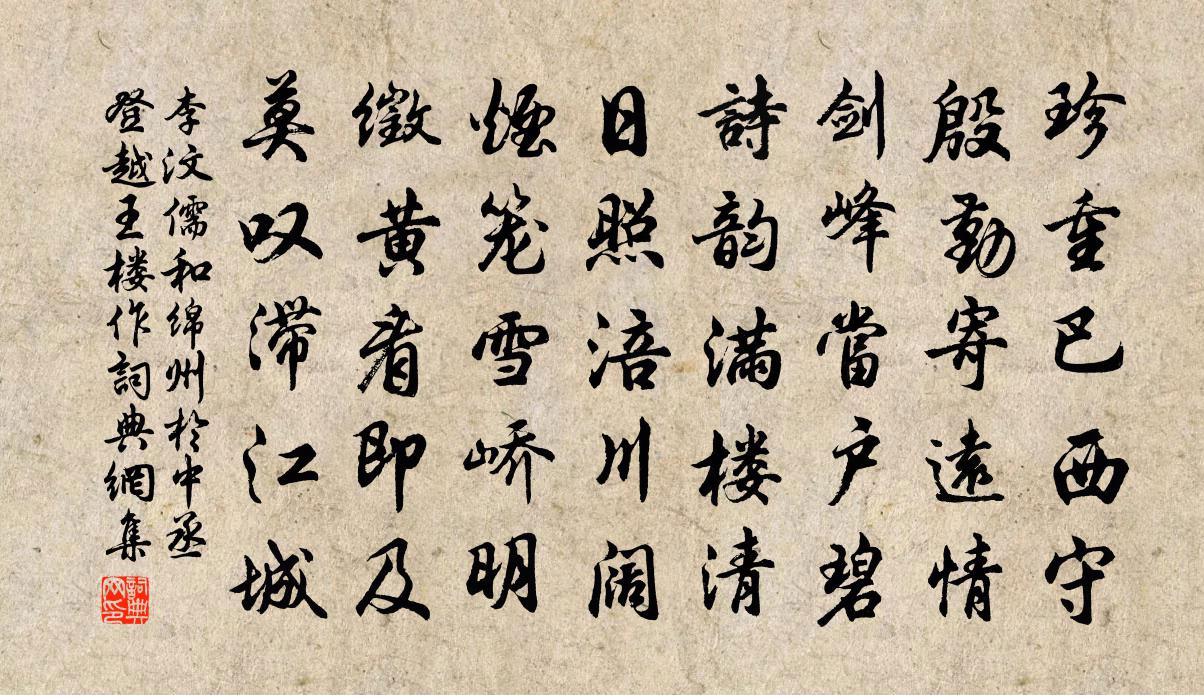 珍重巴西守
殷勤寄遠情
剑峰當户碧
詩韵满楼清
日照涪川阔
煙笼雪峤明
徵黄看即及
莫叹滞江城
李汶儒和绵州於中丞
登越王楼作詞典網集
詞典網印